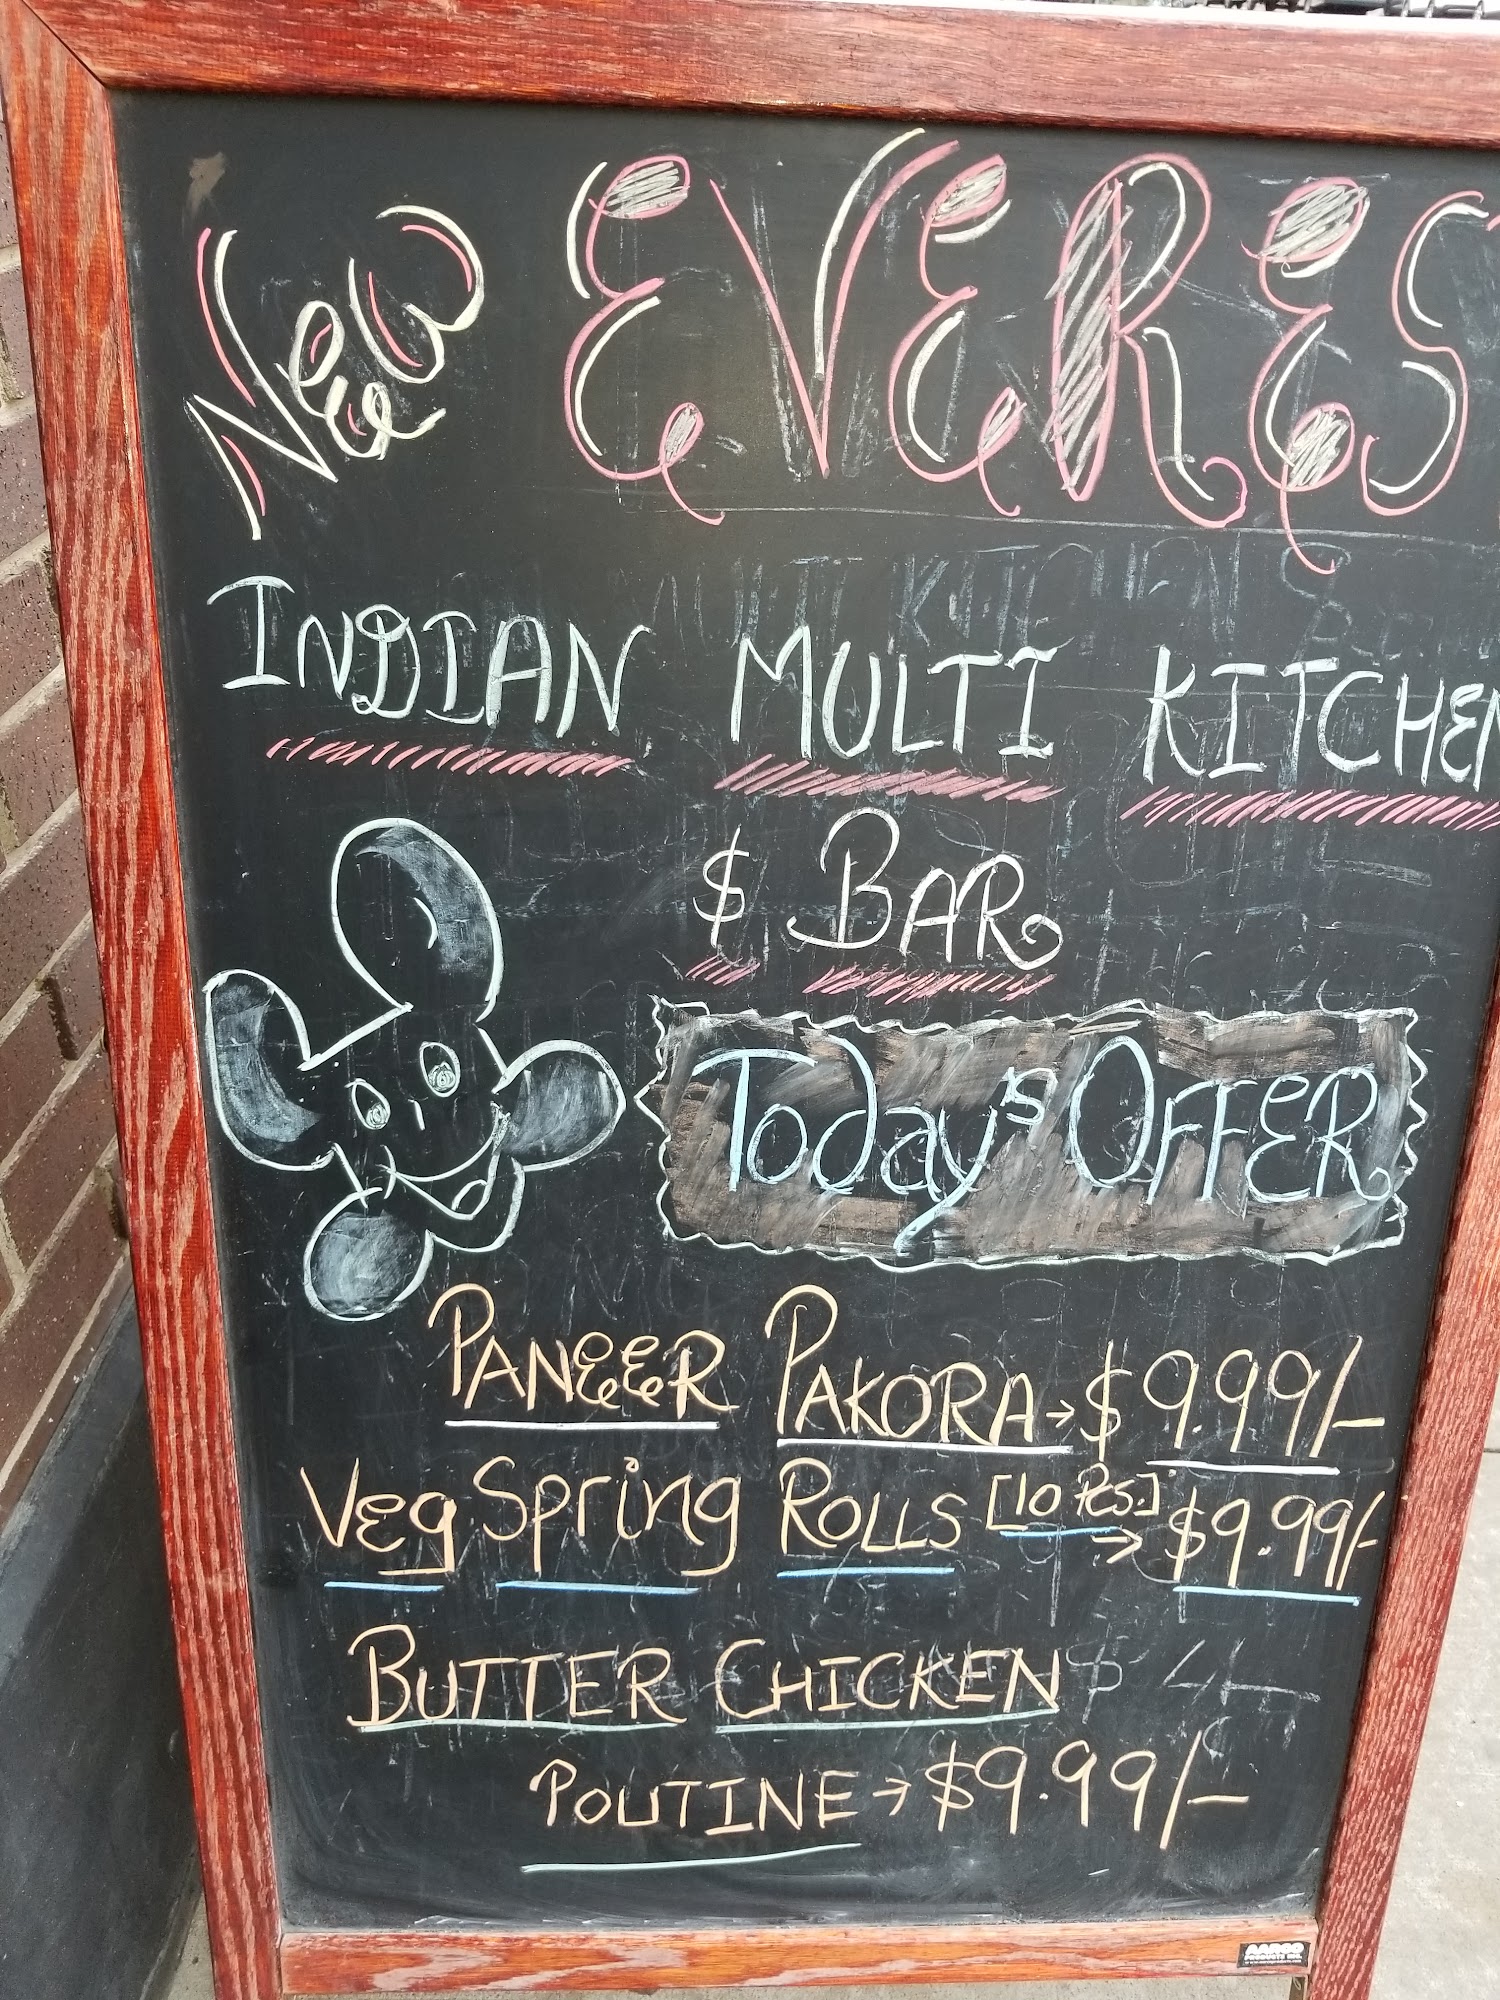 New EVERES
INDIAN MULTI KITCHEN
$ BAR
Today's OFFER
PANEER PAKORA → $9.99/-
Veg Spring ROLLS [10 Pcs.] → $9.99/-
BUTTER CHICKEN
POUTINE → $9.99/-
AARCO